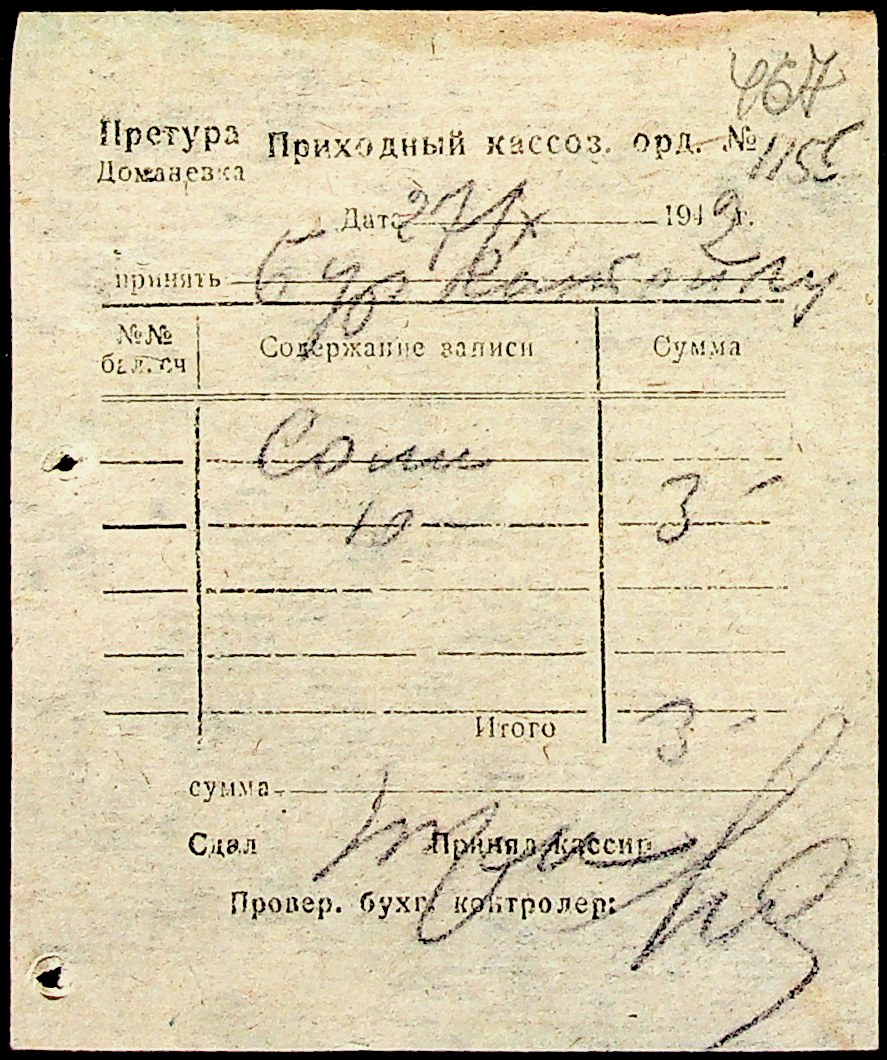 467
Претура Приходный кассов. орд. № 1155
Доманевка
Дата 27/IX 1942 г.
принять
№№ бал. сч Содержание записи Сумма
Соли
10 3 -
Итого 3 -
сумма
Сдал Принял кассир
Провер. бухг. контролер: